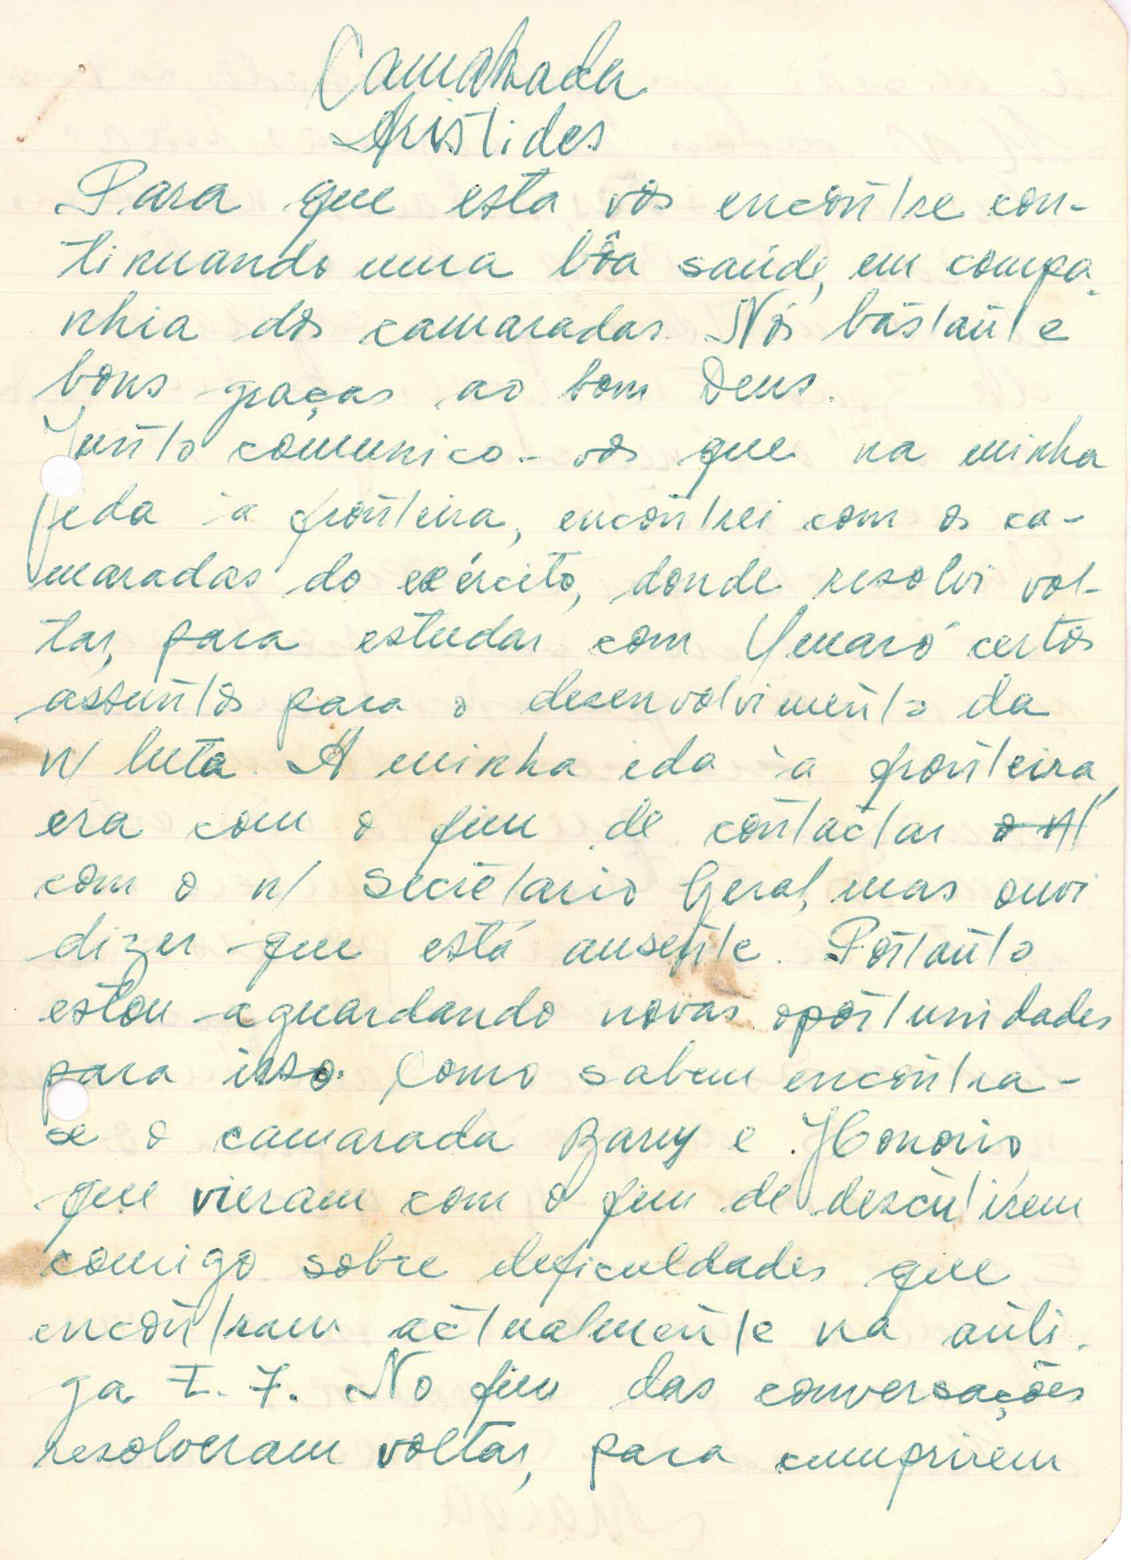 Camarada
Aristides
Para que esta vos encontre con-
tinuando uma bôa saúde, em compa-
nhia dos camaradas. Nós bastante
bons graças ao bom Deus.
Junto comunico-vos que na minha
ida à fronteira, encontrei com os ca-
maradas do exército, donde resolvi vol-
tar, para estudar com Ymaró certos
assuntos para o desenvolvimento da
n/ luta. A minha ida à fronteira,
era com o fim de contactar o n/
com o n/ Secretario Geral, mas ouvi
dizer que está ausente. Portanto
estou aguardando novas oportunidades
para isso. Como sabem encontra-
se o camarada Barry e Honorio,
que vieram com o fim de descutirem
comigo sobre deficuldades que
encontram actualmente na anti-
ga I. 7. No fim das conversações
resolveram voltar, para cumprirem